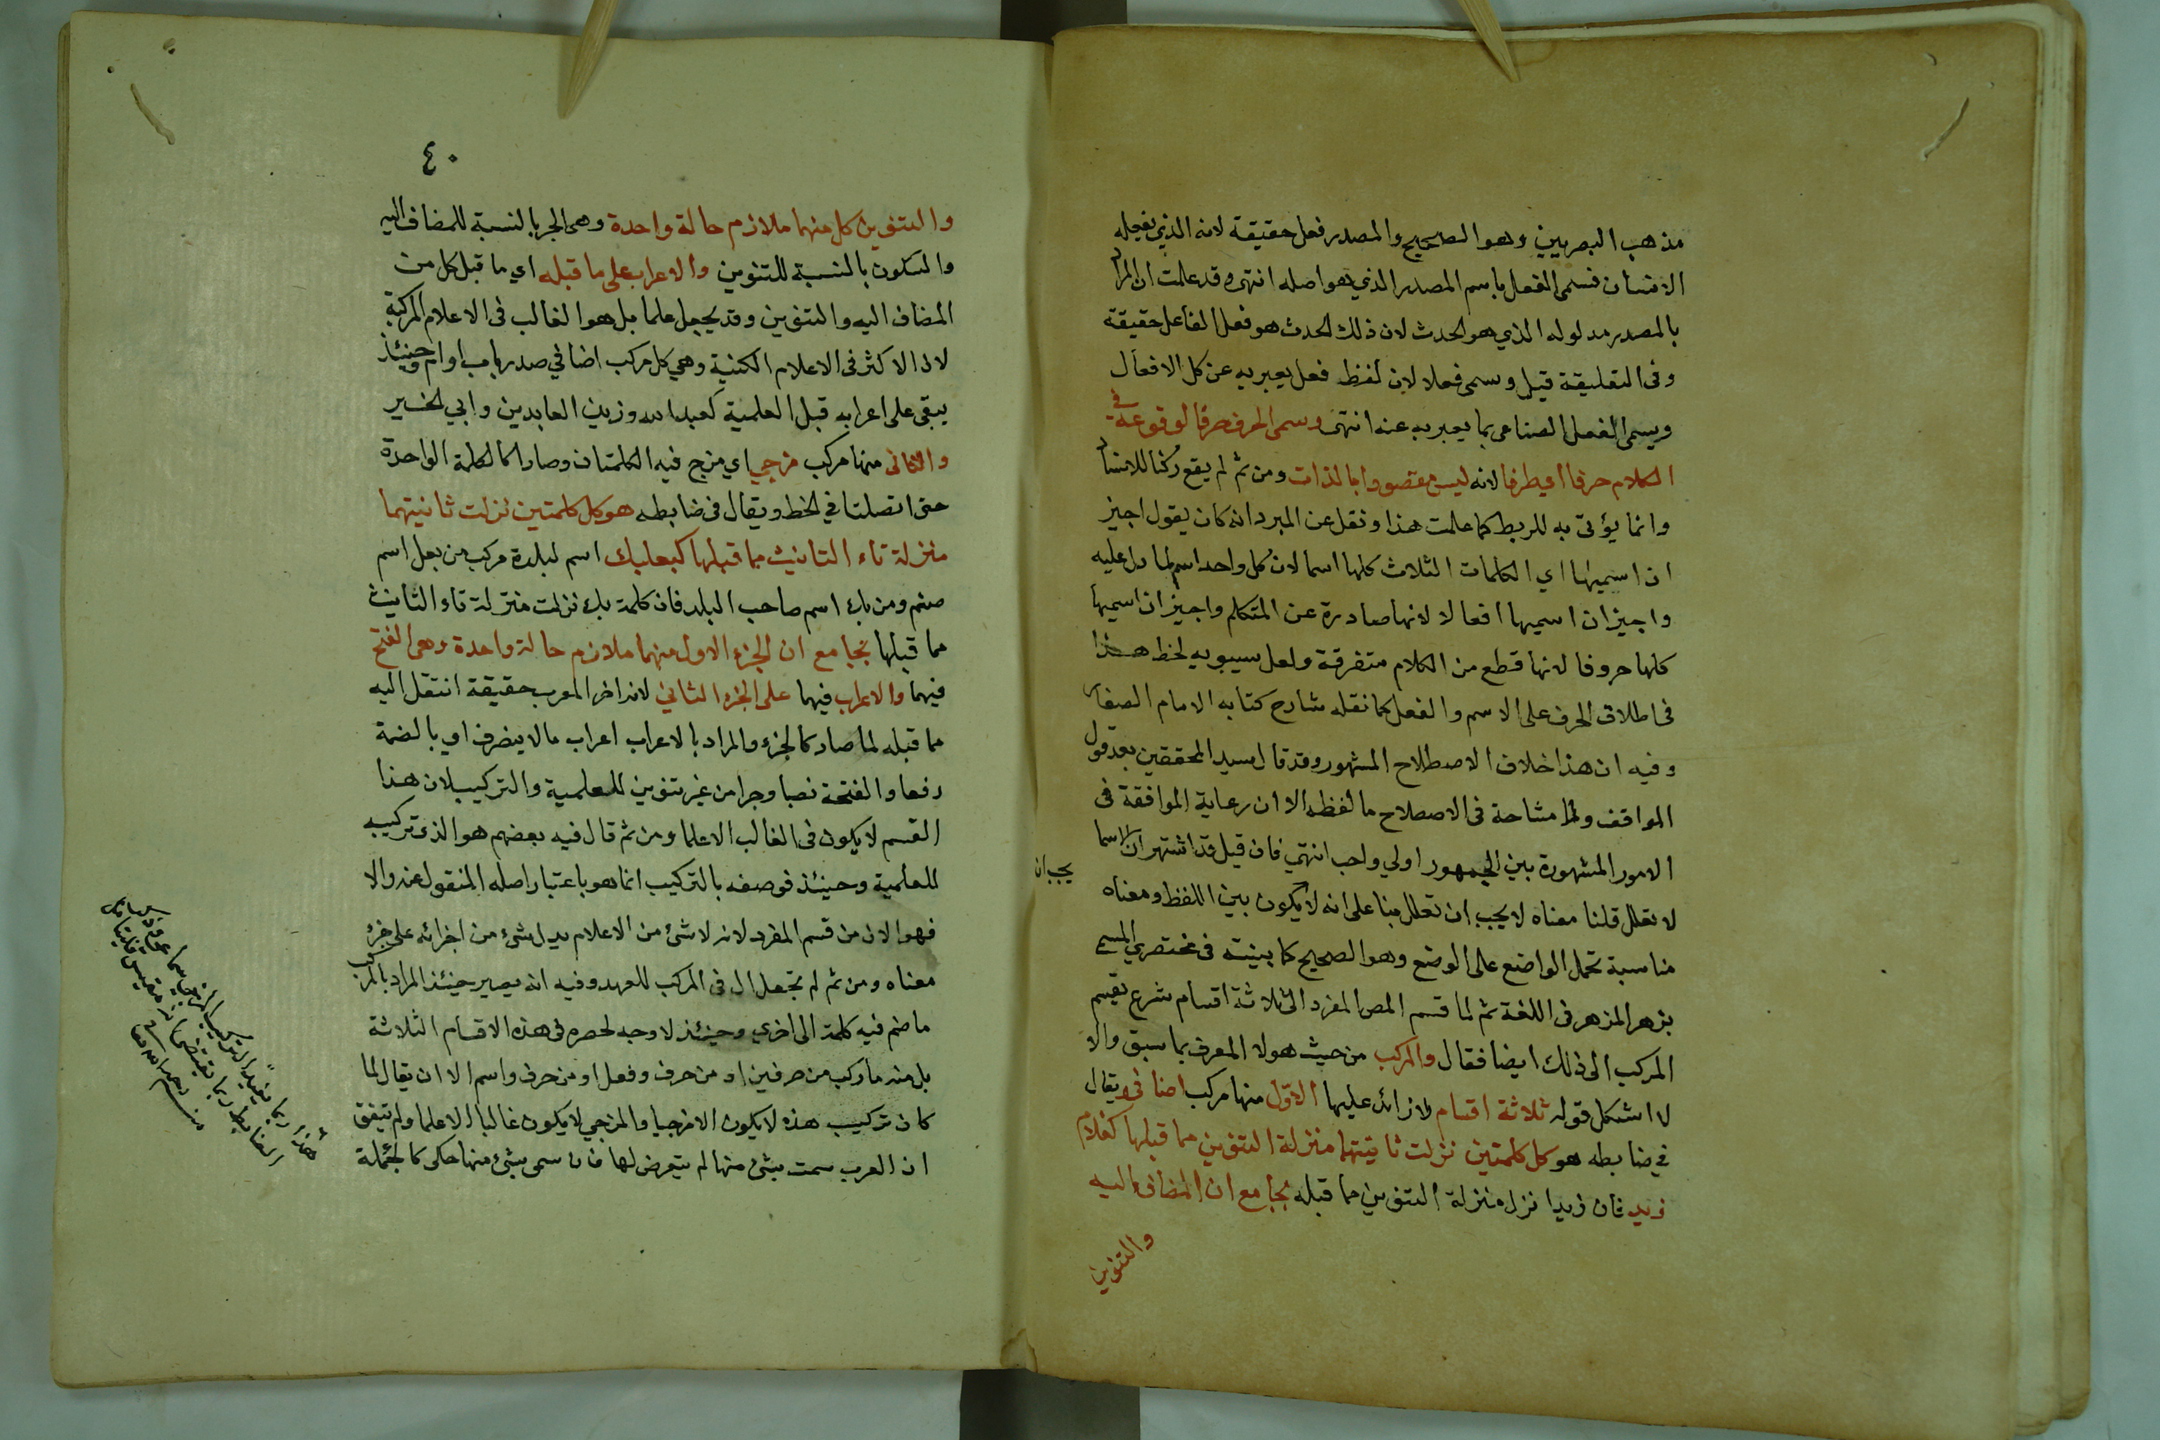 مذهب البصريين وهو الصحيح والمصدر فعل حقيقة لانه الذي يفعله
الانسان فسمى الفعل باسم المصدر الذي هو اصله انتهى وقد علمت ان المراد
بالمصدر مدلوله الذي هو الحدث لان ذلك الحدث هو فعل الفاعل حقيقة
وفى التعليقة قيل وسمى فعلا لان لفظ فعل يعبر به عن كل الافعال
ويسمى الفعل الصناعى بما يعبر به عنه انتهى وسمى الحرف حرفا لوقوعه في
الكلام حرفا اي طرفا لانه ليس مقصودا بالذات ومن ثم لم يقع ركنا للاسناد
وانما يؤتى به للربط كما علمت هذا ونقل عن المبرد انه كان يقول اجيز
ان اسميها اي الكلمات الثلاث كلها اسما لان كل واحد اسم لما دل عليه
واجيز ان اسميها افعالا لانها صادرة عن المتكلم واجيز ان اسميها
كلها حروفا لانها قطع من الكلام متفرقة ولعل سيبويه لحظ هذا
فى اطلاق الحرف على الاسم والفعل كما نقله شارح كتابه الامام الصفار
وفيه ان هذا خلاف الاصطلاح المشهور وقد قال سيد المحققين بعد قول
المواقف ولا مشاحة فى الاصطلاح ما لفظه الا ان رعاية الموافقة فى
الامور المشهورة بين الجمهور اولي واحب انتهي فان قيل قد اشتهر ان الاسما
لا تعلل قلنا معناه لا يجب ان تعلل بنا على انه لا يكون بين اللفظ ومعناه
يجب ان
مناسبة تحمل الواضع على الوضع وهو الصحيح كما بينته فى مختصري المسمى
بزهر المزهر فى اللغة ثم لما قسم المص المفرد الى ثلاثة اقسام شرع يقسم
المركب الى ذلك ايضا فقال والمركب من حيث هو لا المعرف بما سبق والا
لا اشكل قوله ثلاثة اقسام لا زائد عليها الاول منها مركب اضافي ويقال
في ضابطه هو كل كلمتين نزلت ثانيتهما منزلة التنوين مما قبلها كغلام
زيد فان زيدا نزل منزلة التنوين مما قبله بجامع ان المضاف اليه
والتنوين
٤٠
والتنوين كل منهما ملازم حالة واحدة وهى الجر بالنسبة للمضاف اليه
والسكون بالنسبة للتنوين والاعراب على ما قبله اي ما قبل كل من
المضاف اليه والتنوين وقد يجعل علما بل هو الغالب فى الاعلام المركبة
لان الاكثر فى الاعلام الكنية وهي كل مركب اضافي صدر باب او ام وحينئذ
يبقى على اعرابه قبل العلمية كعبد الله وزين العابدين وابي الخير
والثانى منها مركب مزجي اي مزج فيه الكلمتان وصارا كالكلمة الواحدة
حتى اتصلتا في الخط ويقال فى ضابطه هو كل كلمتين نزلت ثانيتهما
منزلة تاء التانيث مما قبلها كبعلبك اسم لبلدة مركب من بعل اسم
صنم ومن بك اسم صاحب البلد فان كلمة بك نزلت منزلة تاء التانيث
مما قبلها بجامع ان الجزء الاول منهما ملازم حالة واحدة وهى الفتح
فيهما والاعراب فيهما على الجزء الثاني لانه اخر المعرب حقيقة انتقل اليه
مما قبله لما صار كالجزء والمراد بالاعراب اعراب ما لا ينصرف اي بالضمة
رفعا والفتحة نصبا وجرا من غير تنوين للعلمية والتركيب لان هذا
القسم لا يكون فى الغالب الا علما ومن ثم قال فيه بعضهم هو الذى تركيبه
للعلمية وحينئذ فوصفه بالتركيب انما هو باعتبار اصله المنقول عنه والا
فهو الان من قسم المفرد لانه لا شئ من الاعلام يدل شئ من اجزائه على جزء
معناه ومن ثم لم تجعل ال فى المركب للعهد وفيه انه يصير حينئذ المراد بالمركب
ما ضم فيه كلمة الى اخري وحينئذ لا وجه لحصره فى هذه الاقسام الثلاثة
بل منه ما ركب من حرفين او من حرف وفعل او من حرف واسم الا ان يقال لما
كان تركيب هذه لا يكون الا مزجيا والمزجي لا يكون غالبا الا علما ولم يتفق
ان العرب سمت بشئ منها لم يتعرض لها فان سمى بشئ منها حكى كالجملة